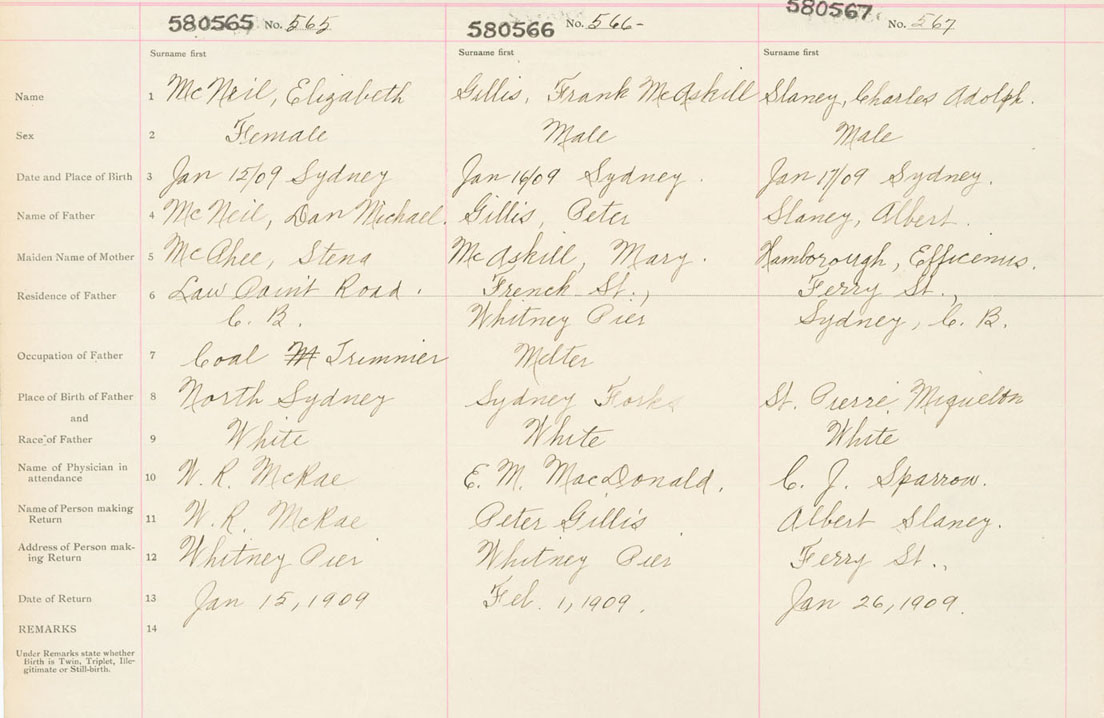 580565 No. 565 580566 No. 566- 580567 No. 567
Surname first Surname first Surname first
Name 1 McNeil, Elizabeth Gillis, Frank McAskill Slaney, Charles Adolph.
Sex 2 Female Male Male
Date and Place of Birth 3 Jan 15/09 Sydney Jan 16/09 Sydney. Jan 17/09 Sydney.
Name of Father 4 McNeil, Dan Michael. Gillis, Peter Slaney, Albert.
Maiden Name of Mother 5 McPhee, Stena McAskill, Mary. Hamborough, Efficenus.
Residence of Father 6 Low Point Road. French St., Ferry St.,
C. B. Whitney Pier Sydney, C. B.
Occupation of Father 7 Coal Trimmier Melter
Place of Birth of Father 8 North Sydney Sydney Forks St. Pierre Miquelon
and
Race of Father 9 White White White
Name of Physician in
attendance 10 W. R. McRae E. M. MacDonald. C. J. Sparrow.
Name of Person making
Return 11 W. R. McRae Peter Gillis Albert Slaney.
Address of Person mak-
ing Return 12 Whitney Pier Whitney Pier Ferry St..
Date of Return 13 Jan 15, 1909 Feb. 1, 1909. Jan 26, 1909.
REMARKS 14
Under Remarks state whether
Birth is Twin, Triplet, Ille-
gitimate or Still-birth.